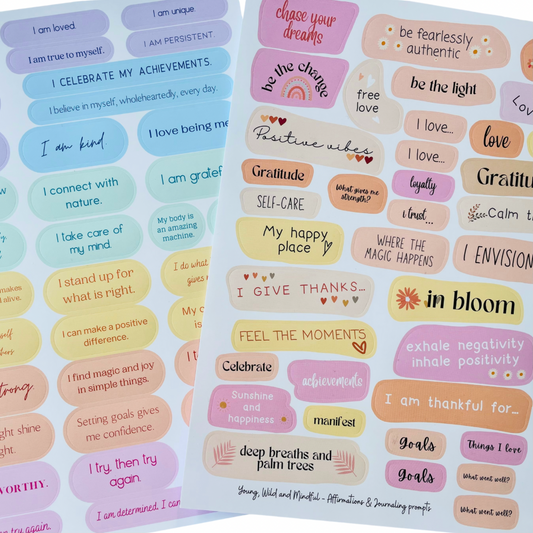 I am loved.
I am unique.
I am true to myself.
I AM PERSISTENT.
I CELEBRATE MY ACHIEVEMENTS.
I believe in myself, wholeheartedly, every day.
I am kind
I love being me
I connect with
nature.
I am
I take care of
my mind.
My body is
an amazing
machine.
makes
alive.
I stand up for
what is right.
I do what
gives
I can make a positive
difference.
is
I find magic and joy
in simple things.
I
Setting goals gives
me confidence.
shine
I try, then try
again.
I am determined. I can
try again.
chase your
dreams
be the change
free
love
be fearlessly
authentic
be the light
Positive vibes
I love...
I love...
love
Gratitude
What gives me
strength?
loyalty
SELF-CARE
i trust...
Calm
My happy
place
WHERE THE
MAGIC HAPPENS
I GIVE THANKS...
in bloom
FEEL THE MOMENTS
exhale negativity
inhale positivity
Celebrate
achievements
I am thankful for...
Sunshine
and
happiness
manifest
goals
Things I love
deep breaths and
palm trees
goals
What went well?
What went well?
Young, Wild and Mindful - Affirmations & Journaling prompts